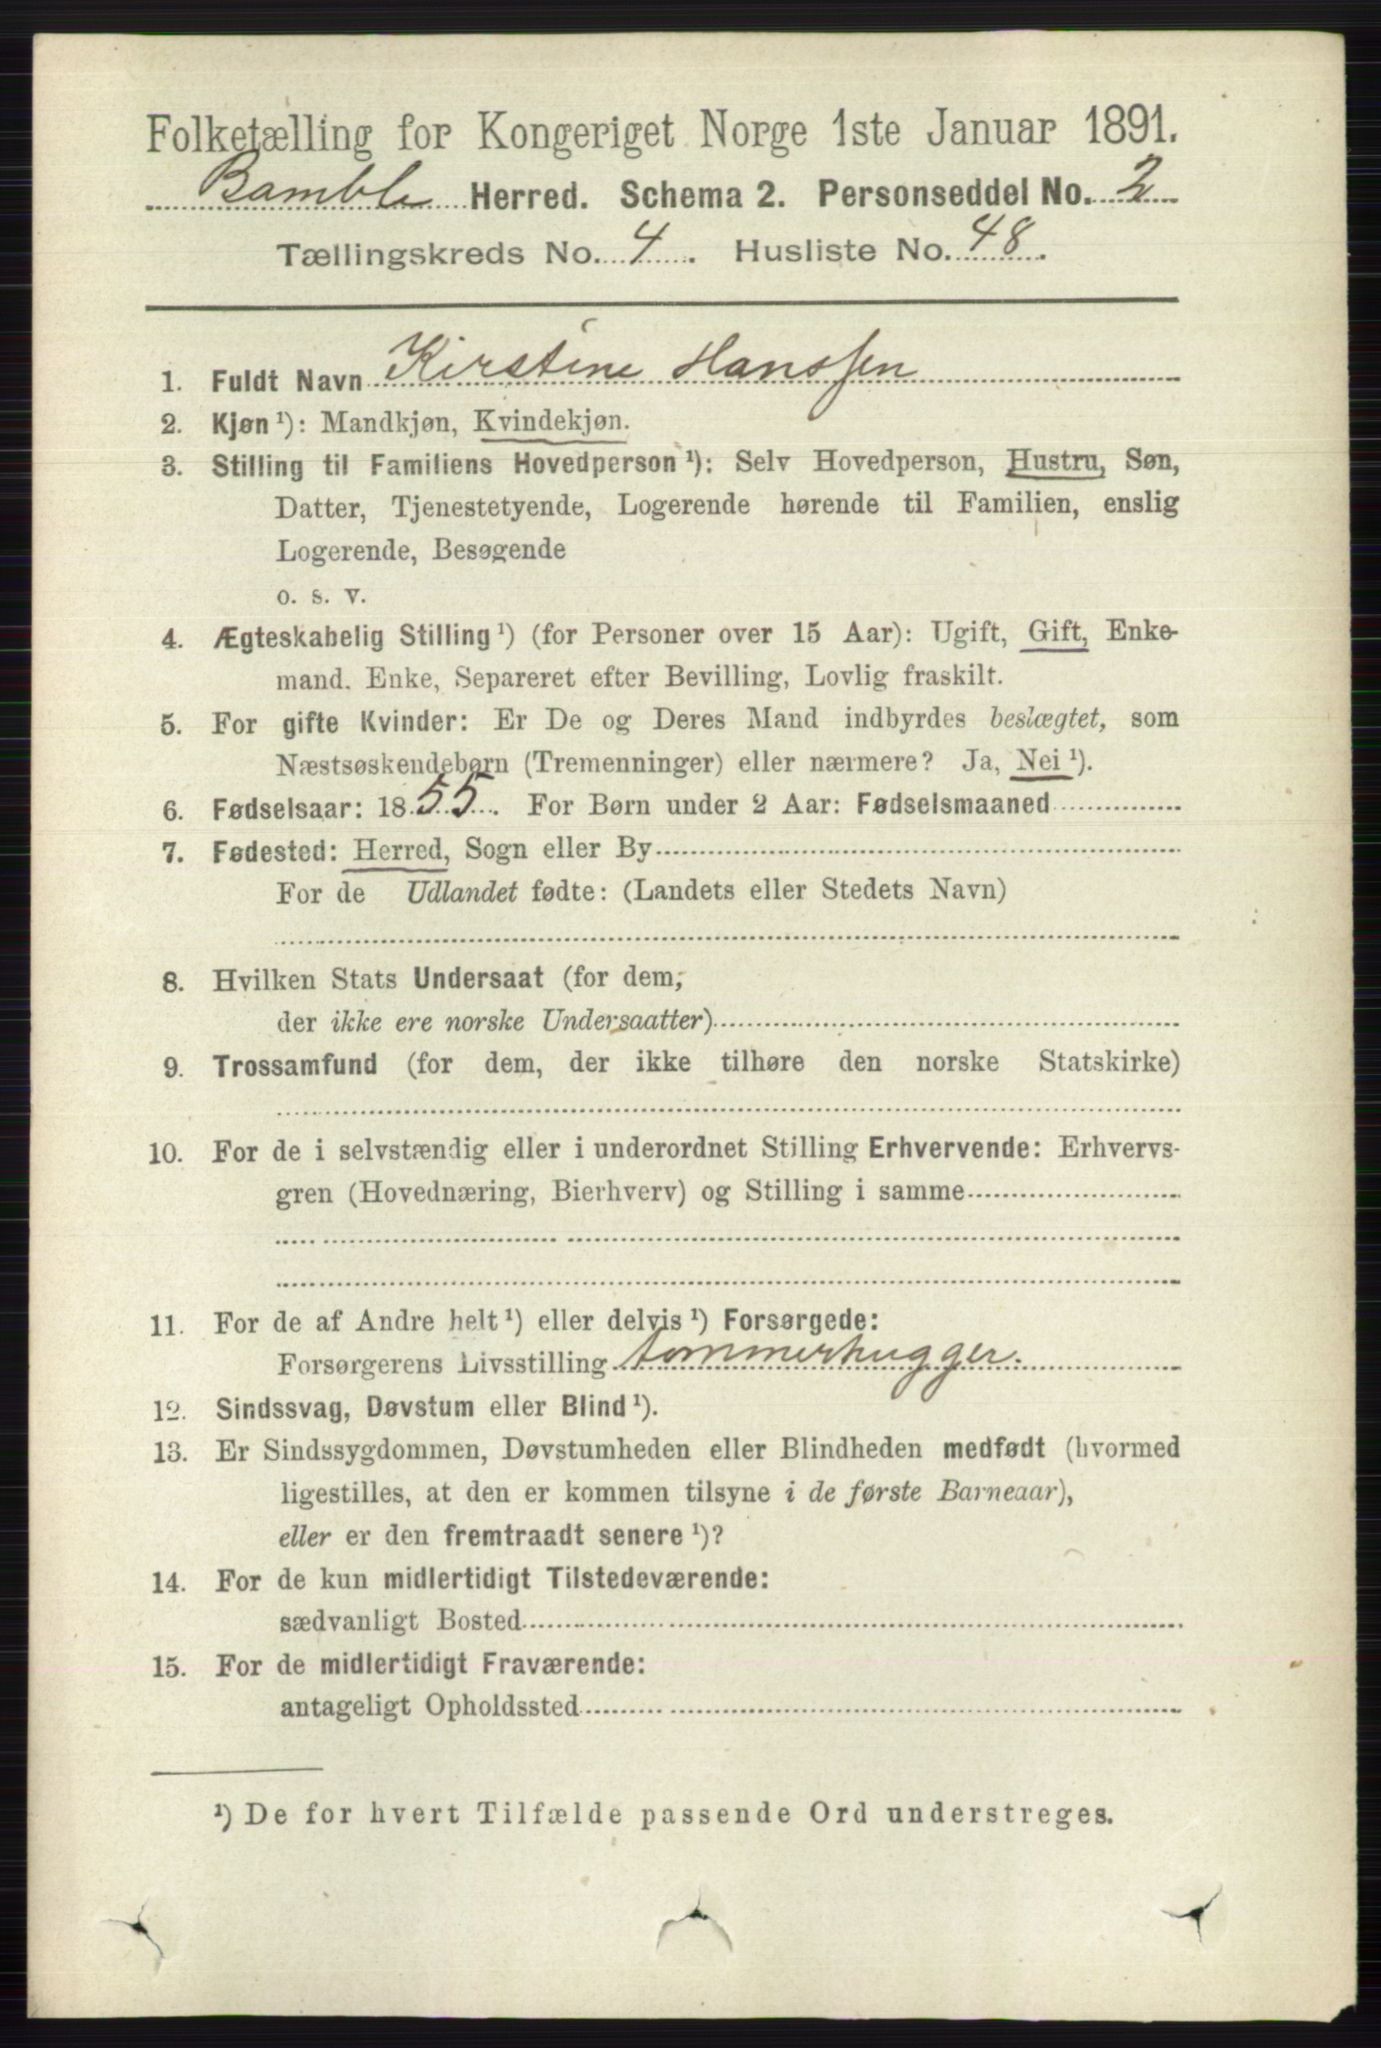 Folketælling for Kongeriget Norge 1ste Januar 1891.
Bamble Herred. Schema 2. Personseddel No. 2
Tællingskreds No. 4. Husliste No. 48.
1. Fuldt Navn Kirstine Hanssen
2. Kjøn ¹): Mandkjøn, Kvindekjøn.
3. Stilling til Familiens Hovedperson ¹): Selv Hovedperson, Hustru, Søn,
Datter, Tjenestetyende, Logerende hørende til Familien, enslig
Logerende, Besøgende
o. s. v.
4. Ægteskabelig Stilling ¹) (for Personer over 15 Aar): Ugift, Gift, Enke-
mand. Enke, Separeret efter Bevilling, Lovlig fraskilt.
5. For gifte Kvinder: Er De og Deres Mand indbyrdes beslægtet, som
Næstsøskendebørn (Tremenninger) eller nærmere? Ja, Nei ¹).
6. Fødselsaar: 1855. For Børn under 2 Aar: Fødselsmaaned
7. Fødested: Herred, Sogn eller By
For de Udlandet fødte: (Landets eller Stedets Navn)
8. Hvilken Stats Undersaat (for dem,
der ikke ere norske Undersaatter)
9. Trossamfund (for dem, der ikke tilhøre den norske Statskirke)
10. For de i selvstændig eller i underordnet Stilling Erhvervende: Erhvervs-
gren (Hovednæring, Bierhverv) og Stilling i samme
11. For de af Andre helt ¹) eller delvis ¹) Forsørgede:
Forsørgerens Livsstilling tommerhugger.
12. Sindssvag, Døvstum eller Blind ¹).
13. Er Sindssygdommen, Døvstumheden eller Blindheden medfødt (hvormed
ligestilles, at den er kommen tilsyne i de første Barneaar),
eller er den fremtraadt senere ¹)?
14. For de kun midlertidigt Tilstedeværende:
sædvanligt Bosted
15. For de midlertidigt Fraværende:
antageligt Opholdssted
¹) De for hvert Tilfælde passende Ord understreges.